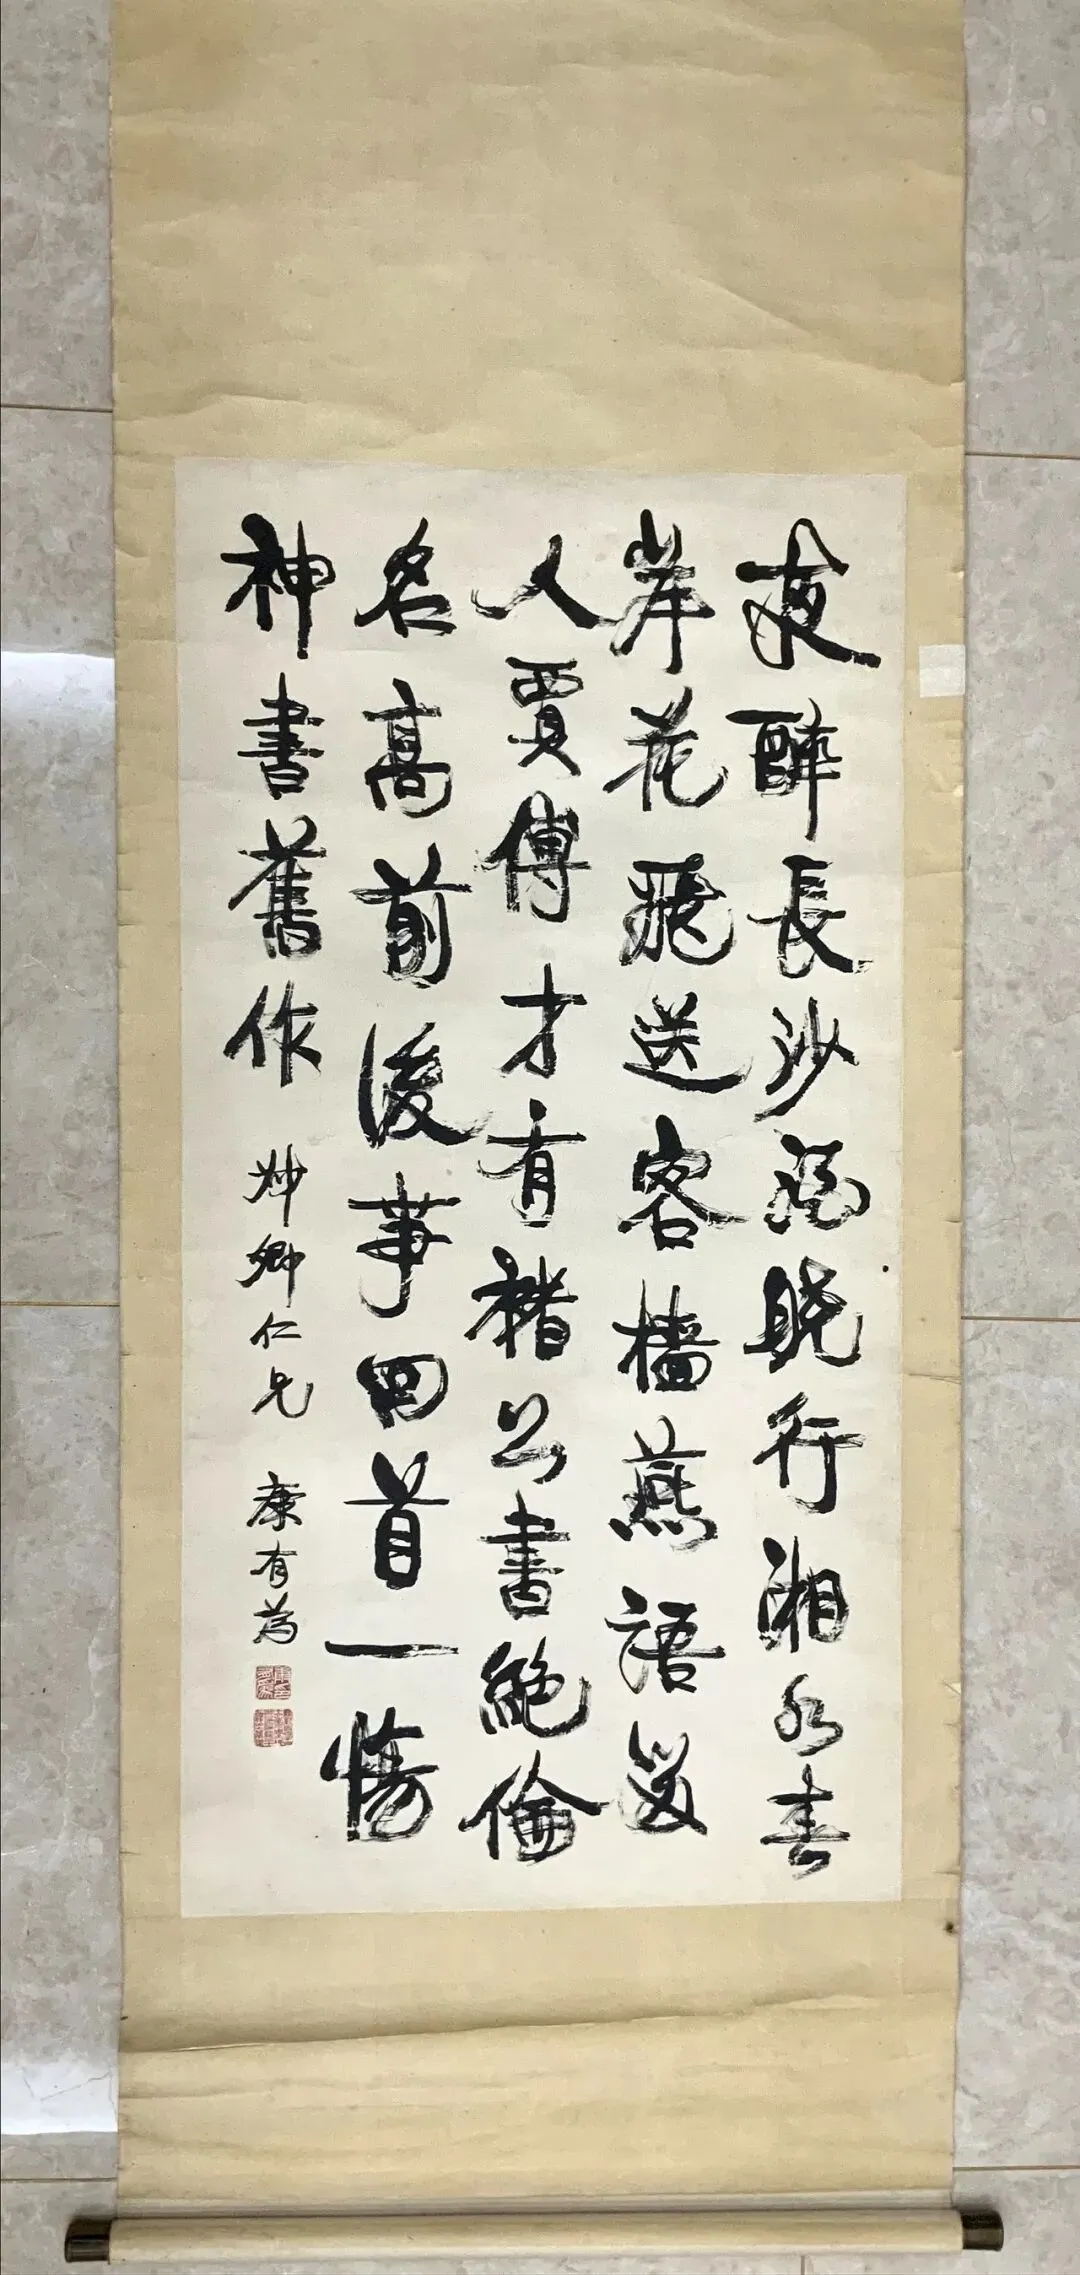 夜醉長沙酒曉行湘水春
岸花飛送客檣燕語留
人賈傅才有褚公書絕倫
名高前後事回首一傷
神書舊作
妙卿仁兄
康有為